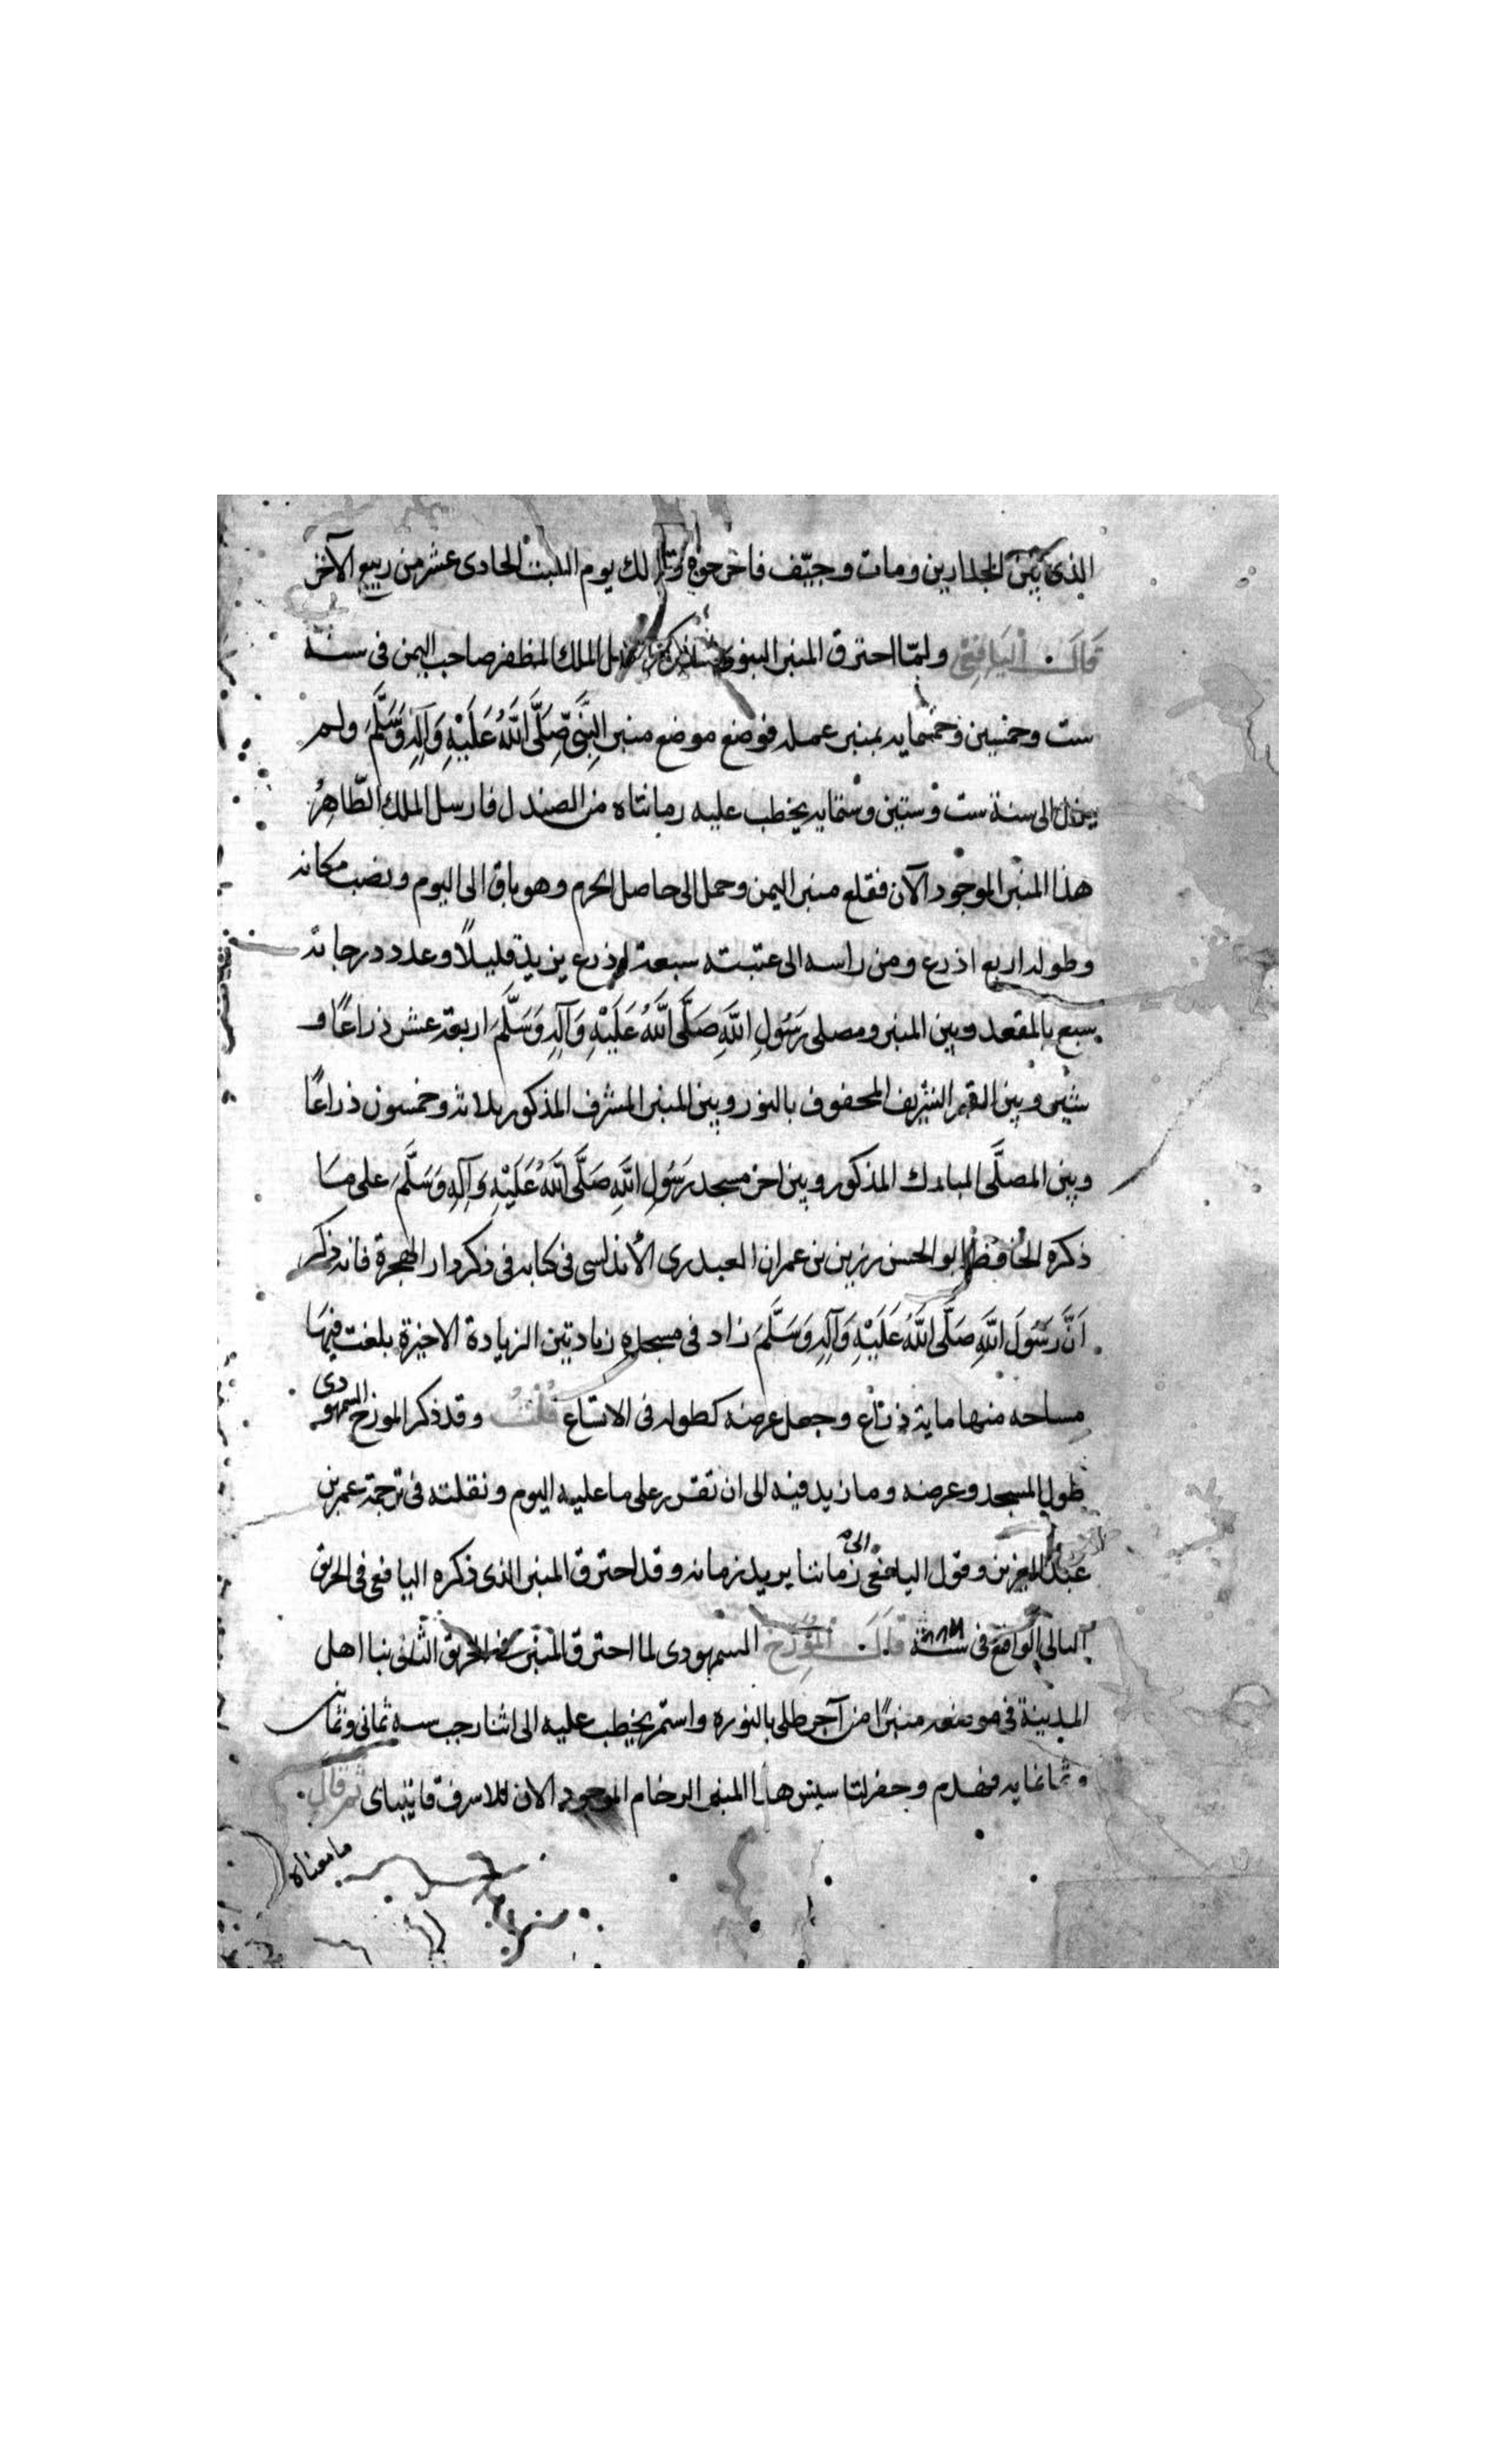 الذى بين الجدارين ومات وجيّف فاخرجوه وذلك يوم السبت الحادى عشر من ربيع الآخر
قال اليافعى ولمّا احترق المنبر النبوى ارسل الملك المظفر صاحب اليمن فى سنة
ست وخمسين وخمسمايه بمنبر عمله فوضع موضع منبر النّبىّ صَلَّى اللَّهُ عَلَيْهِ وَآلِهِ وَسَلَّمَ ولم
يزل الى سنة ست وستين وستمايه يخطب عليه رمانتاه من الصندل فارسل الملك الظّاهِرُ
هذا المنبر الموجود الآن فقلع منبر اليمن وحمل الى حاصل الحرم وهو باق الى اليوم ونصب مكانه
وطوله اربع اذرع ومن راسه الى عتبته سبعة اذرع يزيد قليلاً وعدد درجاته
سبع بالمقعد وبين المنبر ومصلى رَسُولِ اللَّهِ صَلَّى اللَّهُ عَلَيْهِ وَآلِهِ وَسَلَّمَ اربعة عشر ذراعًا و
شبر وبين القبر الشريف المحفوف بالنور وبين المنبر المشرف المذكور ثلاثه وخمسون ذراعًا
وبين المصلَّى المبارك المذكور وبين اخر مسجد رَسُولِ اللَّهِ صَلَّى اللَّهُ عَلَيْهِ وَآلِهِ وَسَلَّمَ على مَا
ذكره الحافظ ابو الحسن رزين بن عمران العبدرى الأندلسى فى كتابه فى ذكر دار الهجرة فانه ذكر
اَنَّ رَسُولَ اللَّهِ صَلَّى اللَّهُ عَلَيْهِ وَآلِهِ وَسَلَّمَ زاد فى مسجده زيادتين الزيادة الاخيرة بلغت فيهَا
مساحه منها مايه ذراع وجعل عرضه كطوله فى الاتساع قُلْتُ وقد ذكر المورخ السمهودى
طول المسجد وعرضه وما زيد فيه الى ان تقرر على ما عليه اليوم ونقلته فى ترجمة عمر بن
عبد العزيز وقول اليافعى الى زماننا يريد زمانه وقد احترق المنبر الذى ذكره اليافعى فى الحريق
الثانى الواقع فى سنة ٨٨٦ قال المورخ السمهودى لما احترق المنبر فى الحريق الثانى بنا اهل
المدينة فى موضعه منبرًا من آجر طلى بالنوره واستمر يخطب عليه الى اثنا رجب سنه ثمانى وثمانين
وثمانمايه فهدم وحفر لتاسيس هذا المنبر الرخام الموجود الان للاشرف قايتباى ثم قال
مامعناه